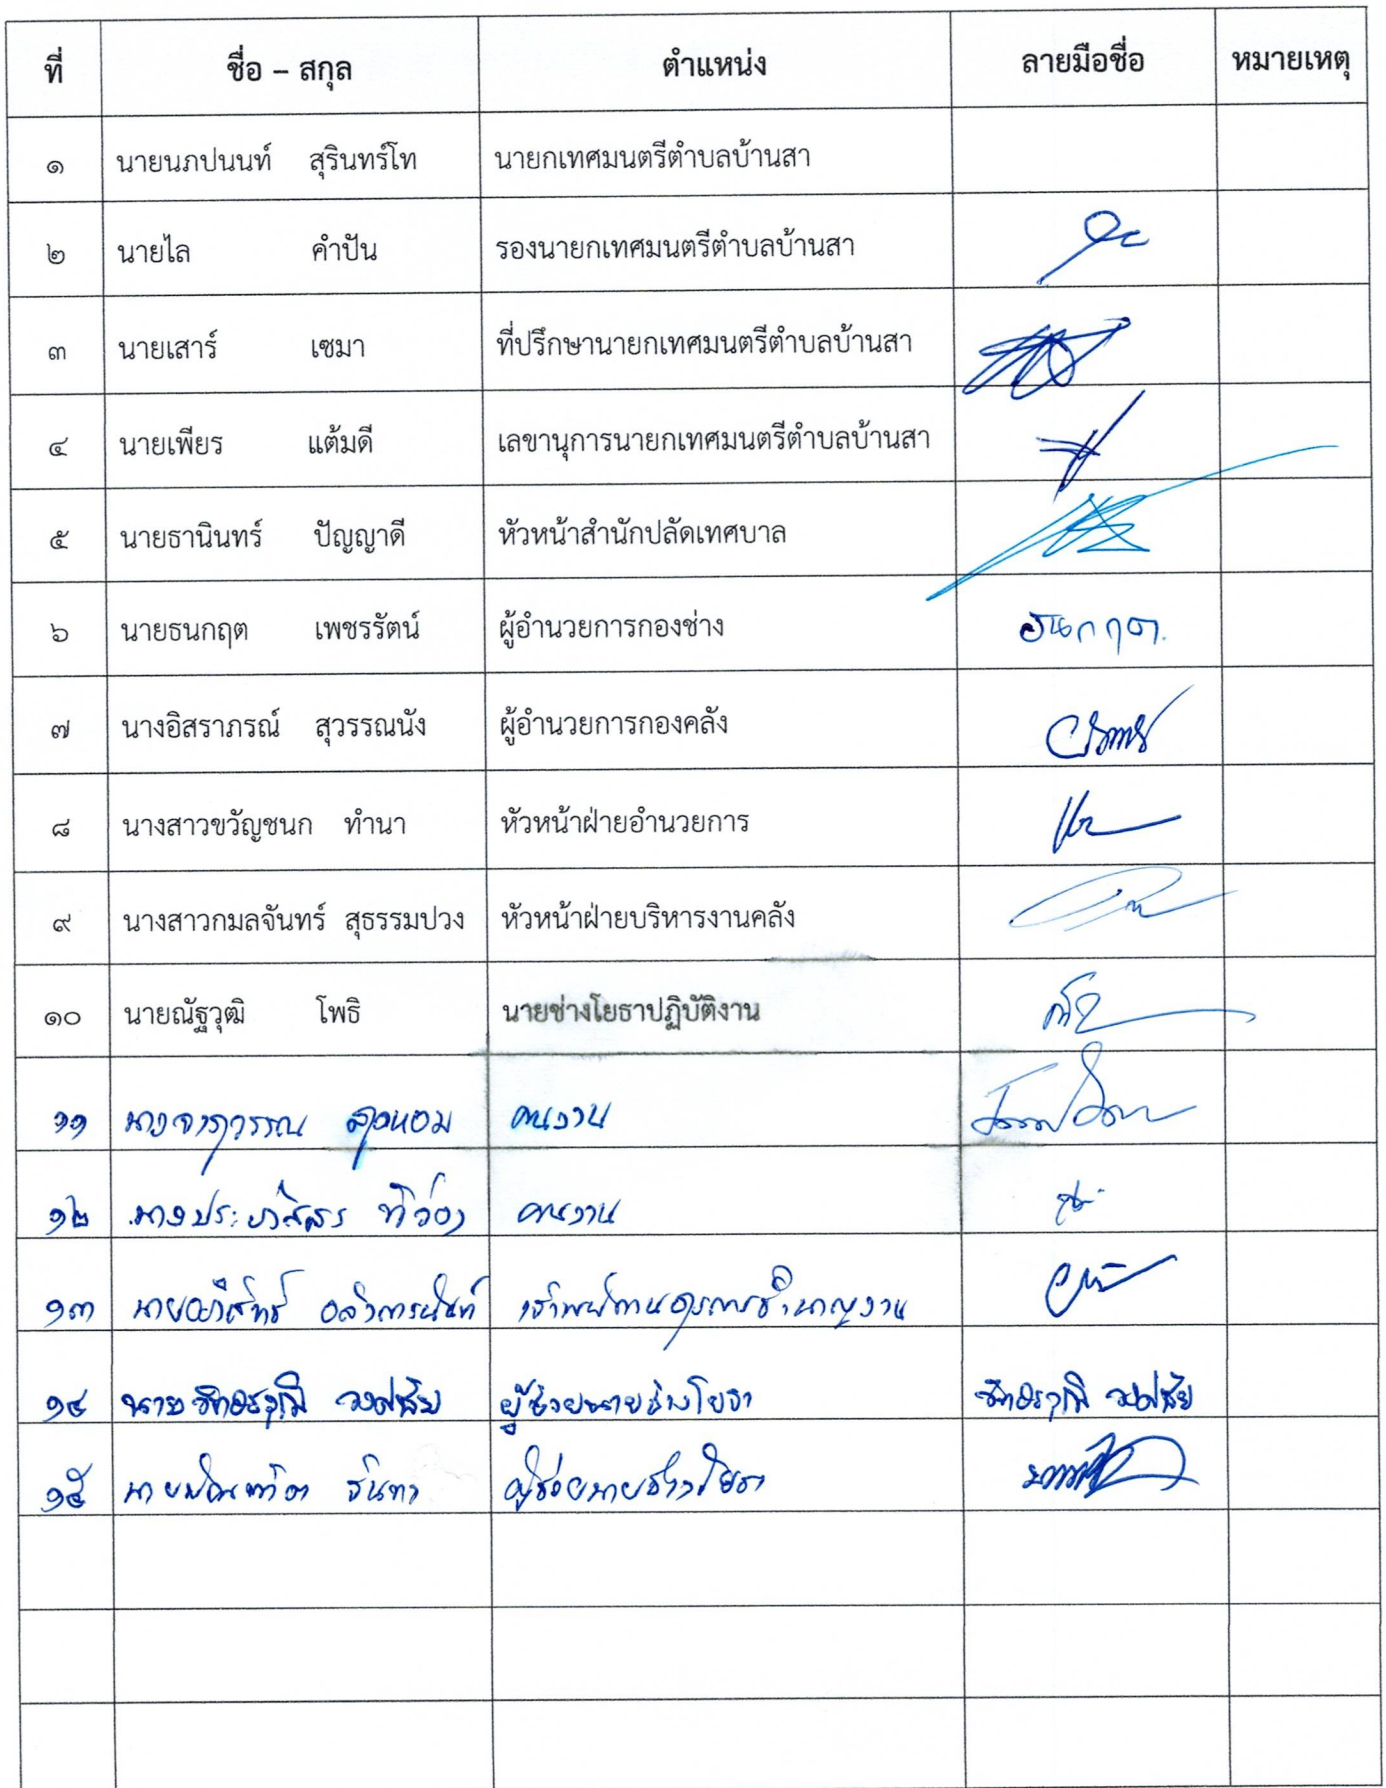 ที่ ชื่อ – สกุล ตำแหน่ง ลายมือชื่อ หมายเหตุ
๑ นายนภปนนท์ สุรินทร์โท นายกเทศมนตรีตำบลบ้านสา
๒ นายไล คำปัน รองนายกเทศมนตรีตำบลบ้านสา
๓ นายเสาร์ เซมา ที่ปรึกษานายกเทศมนตรีตำบลบ้านสา
๔ นายเพียร แต้มดี เลขานุการนายกเทศมนตรีตำบลบ้านสา
๕ นายธานินทร์ ปัญญาดี หัวหน้าสำนักปลัดเทศบาล
๖ นายธนกฤต เพชรรัตน์ ผู้อำนวยการกองช่าง ธนกฤต.
๗ นางอิสราภรณ์ สุวรรณนัง ผู้อำนวยการกองคลัง
๘ นางสาวขวัญชนก ทำนา หัวหน้าฝ่ายอำนวยการ
๙ นางสาวกมลจันทร์ สุธรรมปวง หัวหน้าฝ่ายบริหารงานคลัง
๑๐ นายณัฐวุฒิ โพธิ นายช่างโยธาปฏิบัติงาน
๑๑ นางจารุวรรณ คนงาน
๑๒ คนงาน
๑๓ เจ้าพนักงานธุรการชำนาญงาน
๑๔ นาย ผู้ช่วยนายช่างโยธา
๑๕ นาย จันทา ผู้ช่วยนายช่างโยธา